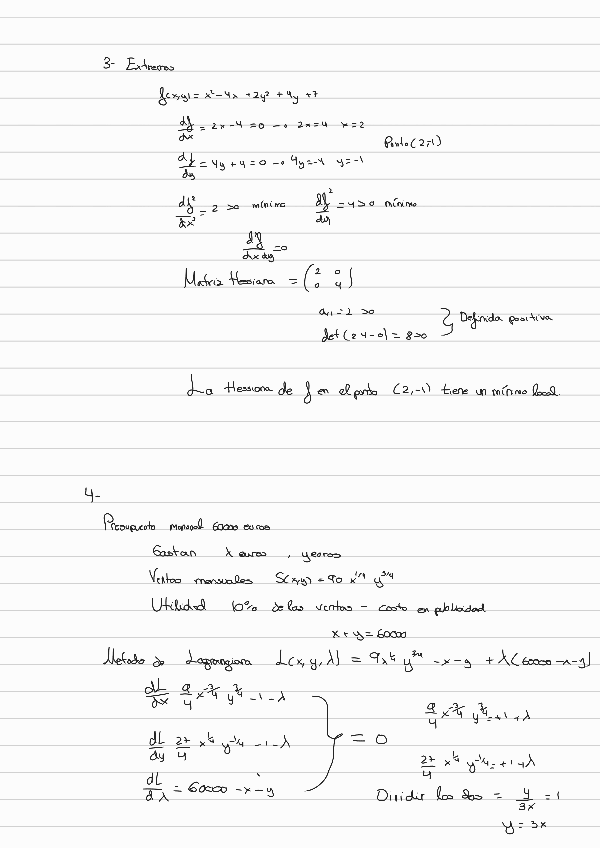 3- Extremos
f(x,y) = x² - 4x + 2y² + 4y + 7
df/dx = 2x - 4 = 0 → 2x = 4 x = 2
Punto (2,-1)
df/dy = 4y + 4 = 0 → 4y = -4 y = -1
df²/dx² = 2 >0 mínimo df²/dy = 4 > 0 mínimo
df/dxdy = 0
Matriz Hessiana = (2 0
0 4)
a₁₁ = 2 >0
det (2·4 - 0) = 8 >0 } Definida positiva
La Hessiana de f en el punto (2,-1) tiene un mínimo local.
4-
Presupuesto mensual 60000 euros
Gastan x euros, y euros
Ventas mensuales S(x,y) = 90 x^1/4 y^3/4
Utilidad 10% de las ventas - costo en publicidad
x + y = 60000
Método de Lagrangiana L(x, y, λ) = 9x^1/4 y^3/4 - x - y + λ(60000 - x - y)
dL/dx 9/4 x^-3/4 y^3/4 - 1 - λ
9/4 x^-3/4 y^3/4 = +1 + λ
dL/dy 27/4 x^1/4 y^-1/4 - 1 - λ } = 0
27/4 x^1/4 y^-1/4 = +1 + λ
dL/dλ = 60000 - x - y
Dividir los dos = y/3x = 1
y = 3x